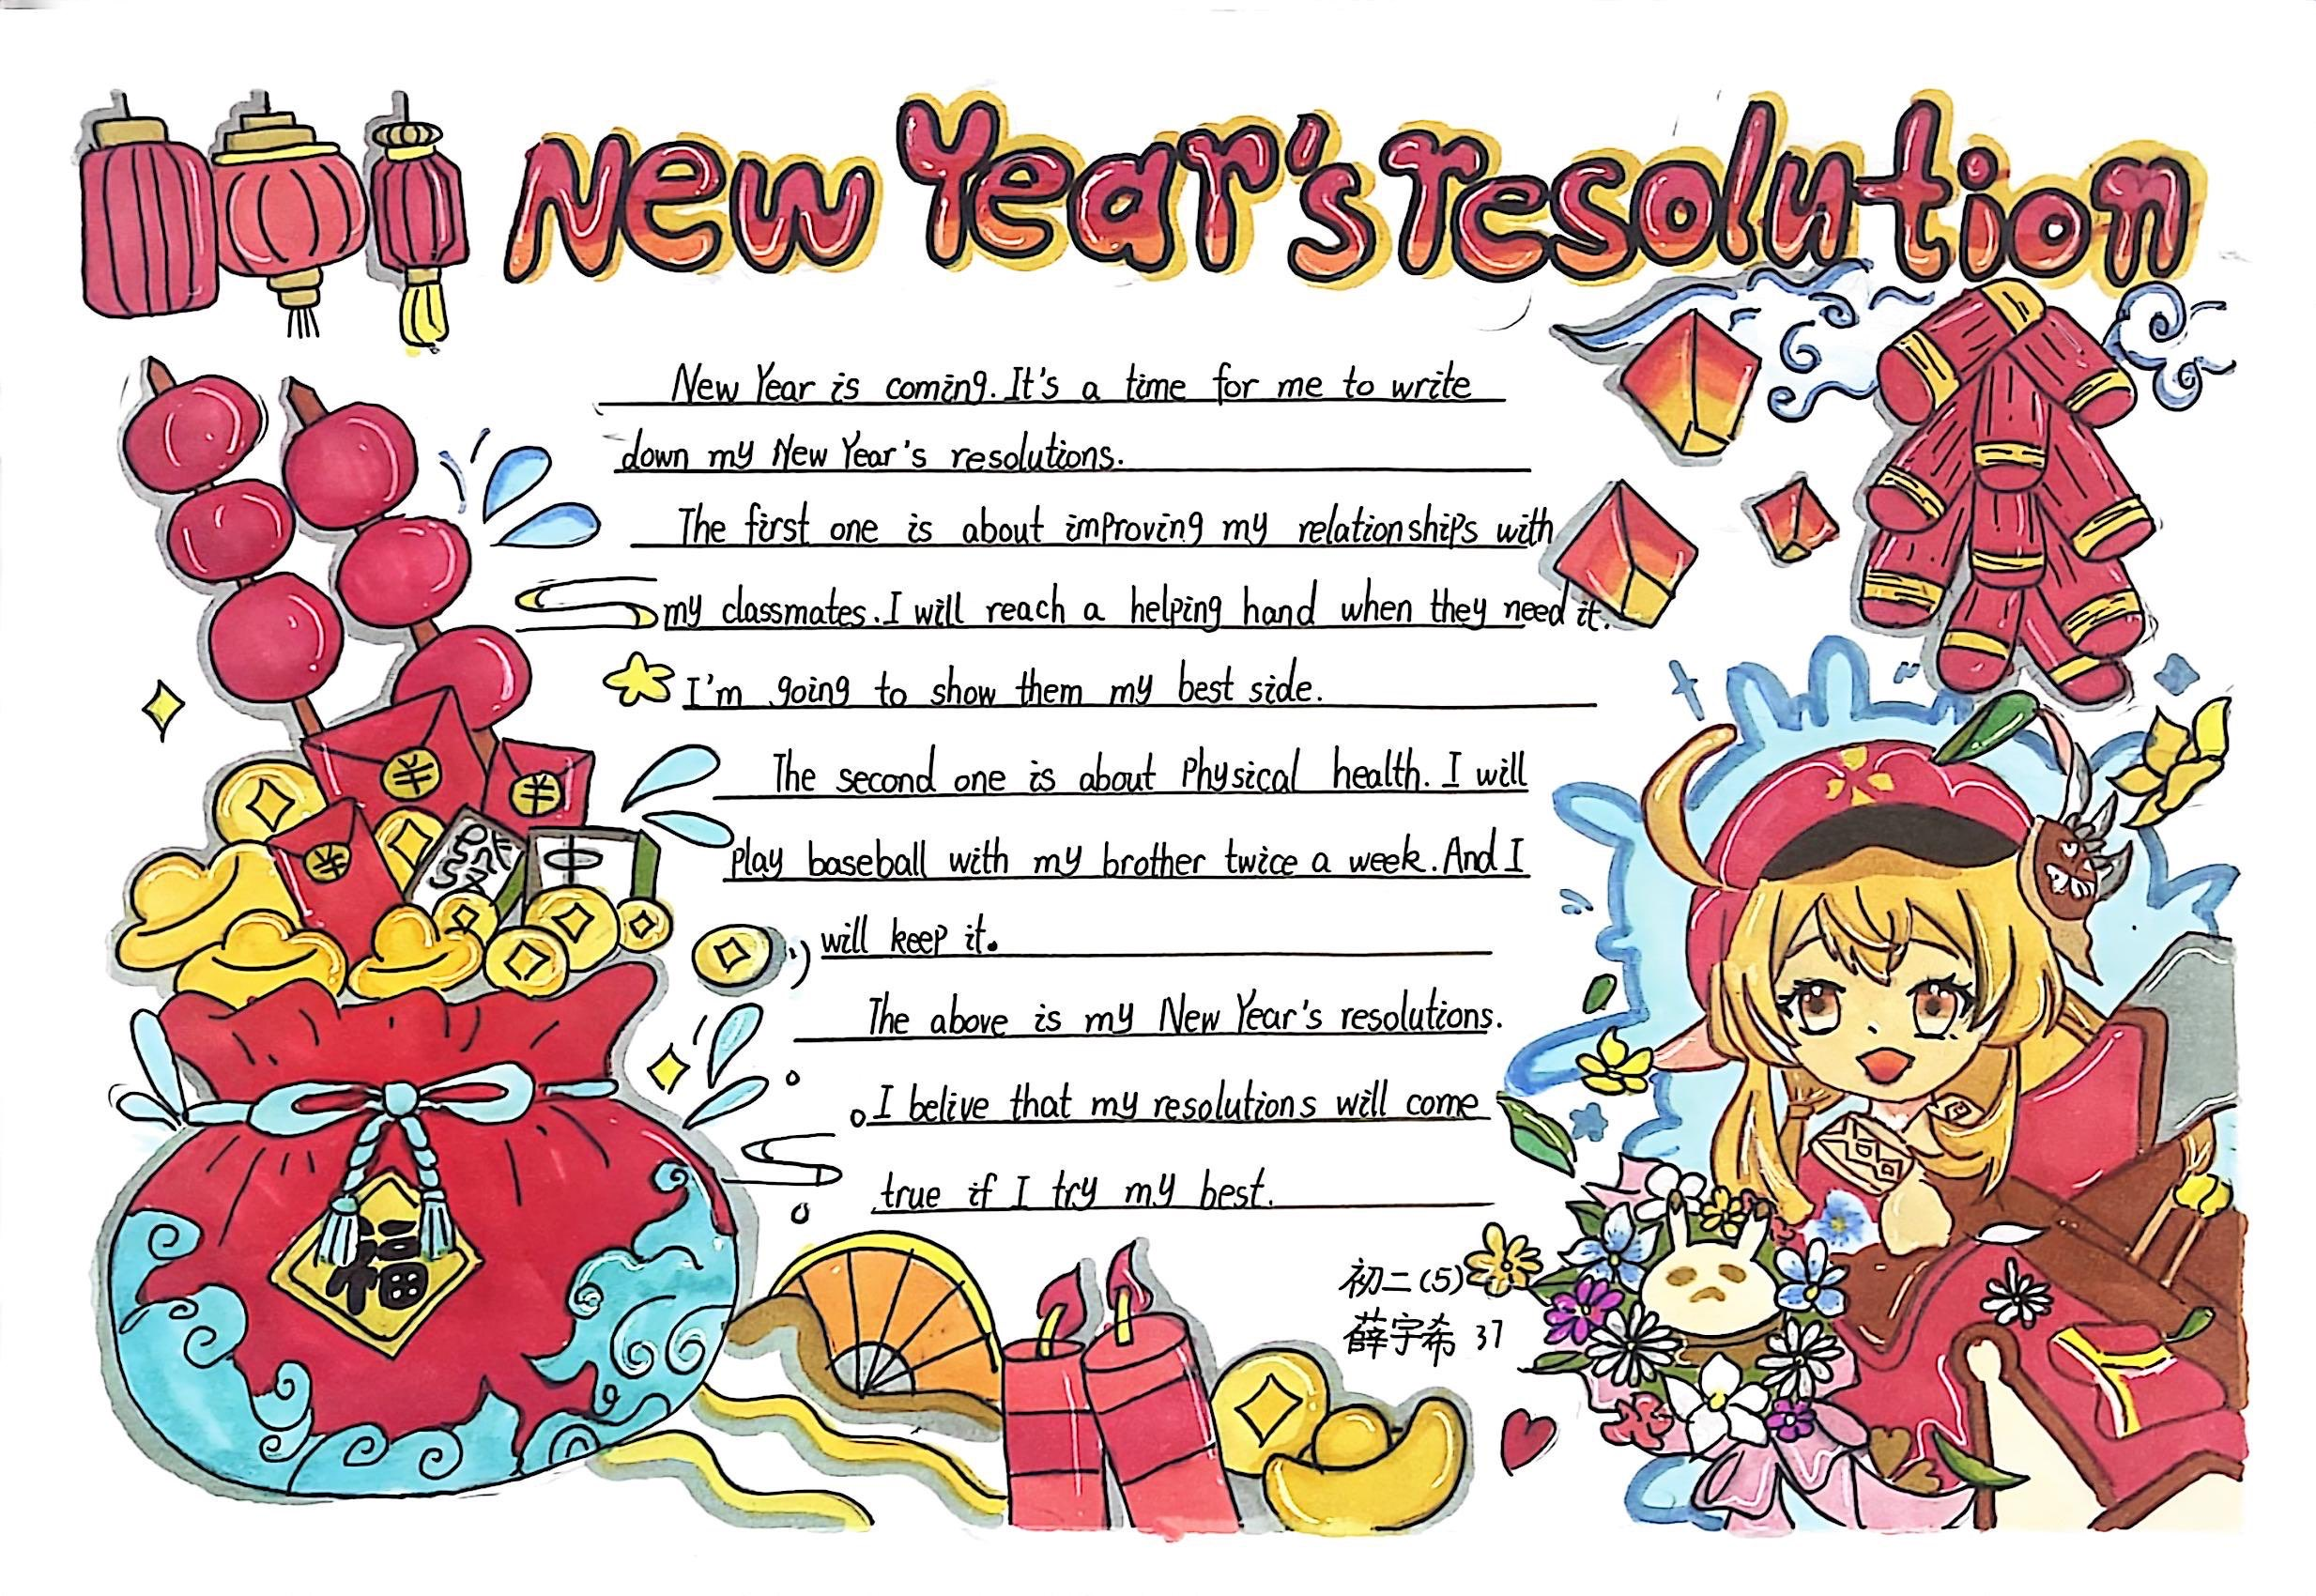 New Year's resolution
New Year is coming. It's a time for me to write
down my New Year's resolutions.
The first one is about improving my relationships with
my classmates. I will reach a helping hand when they need it.
I'm going to show them my best side.
The second one is about Physical health. I will
play baseball with my brother twice a week. And I
will keep it.
The above is my New Year's resolutions.
I belive that my resolutions will come
true if I try my best.
初二(5)
薛宇希 37
發 中
福